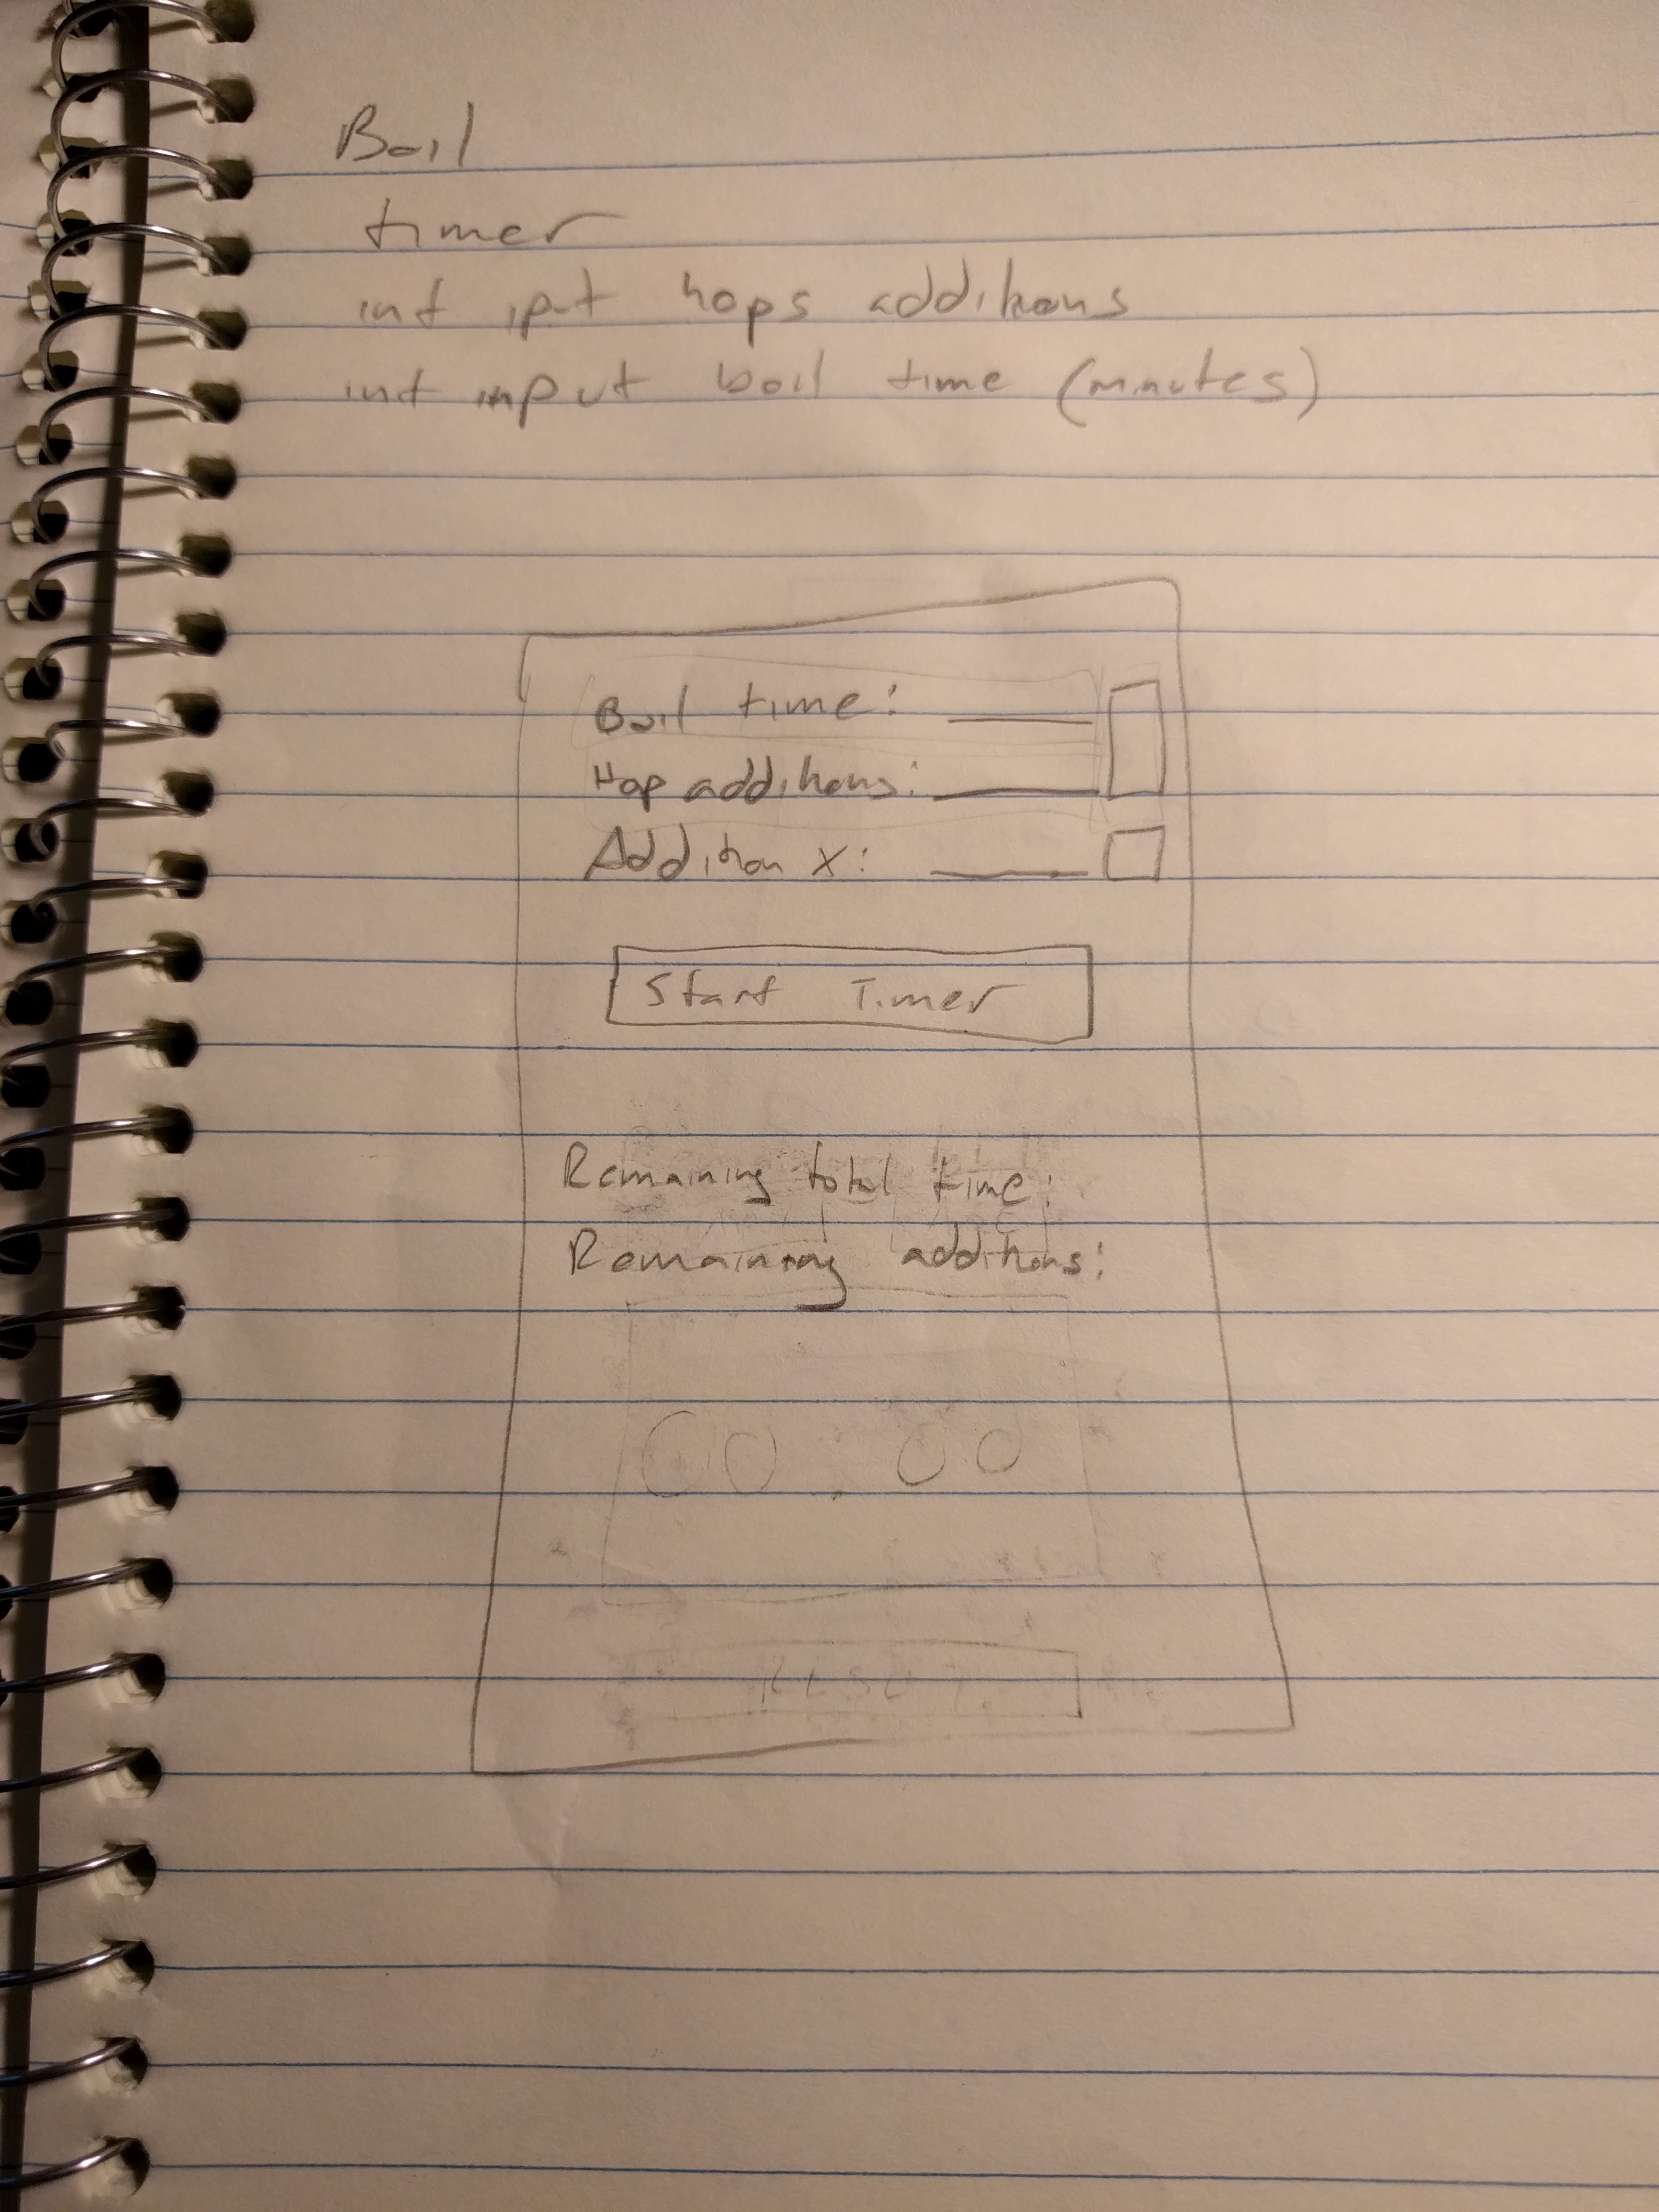 Boil
timer
int iput hops additions
int input boil time (minutes)
Boil time:
Hop additions:
Addition X:
Start Timer
Remaining total time:
Remaining additions:
00:00